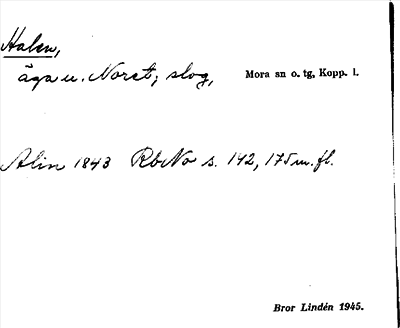 Halen,
äga u. Noret; slog, Mora sn o. tg, Kopp. l.
Alin 1843 RbNo s. 142, 175 m. fl.
Bror Lindén 1945.